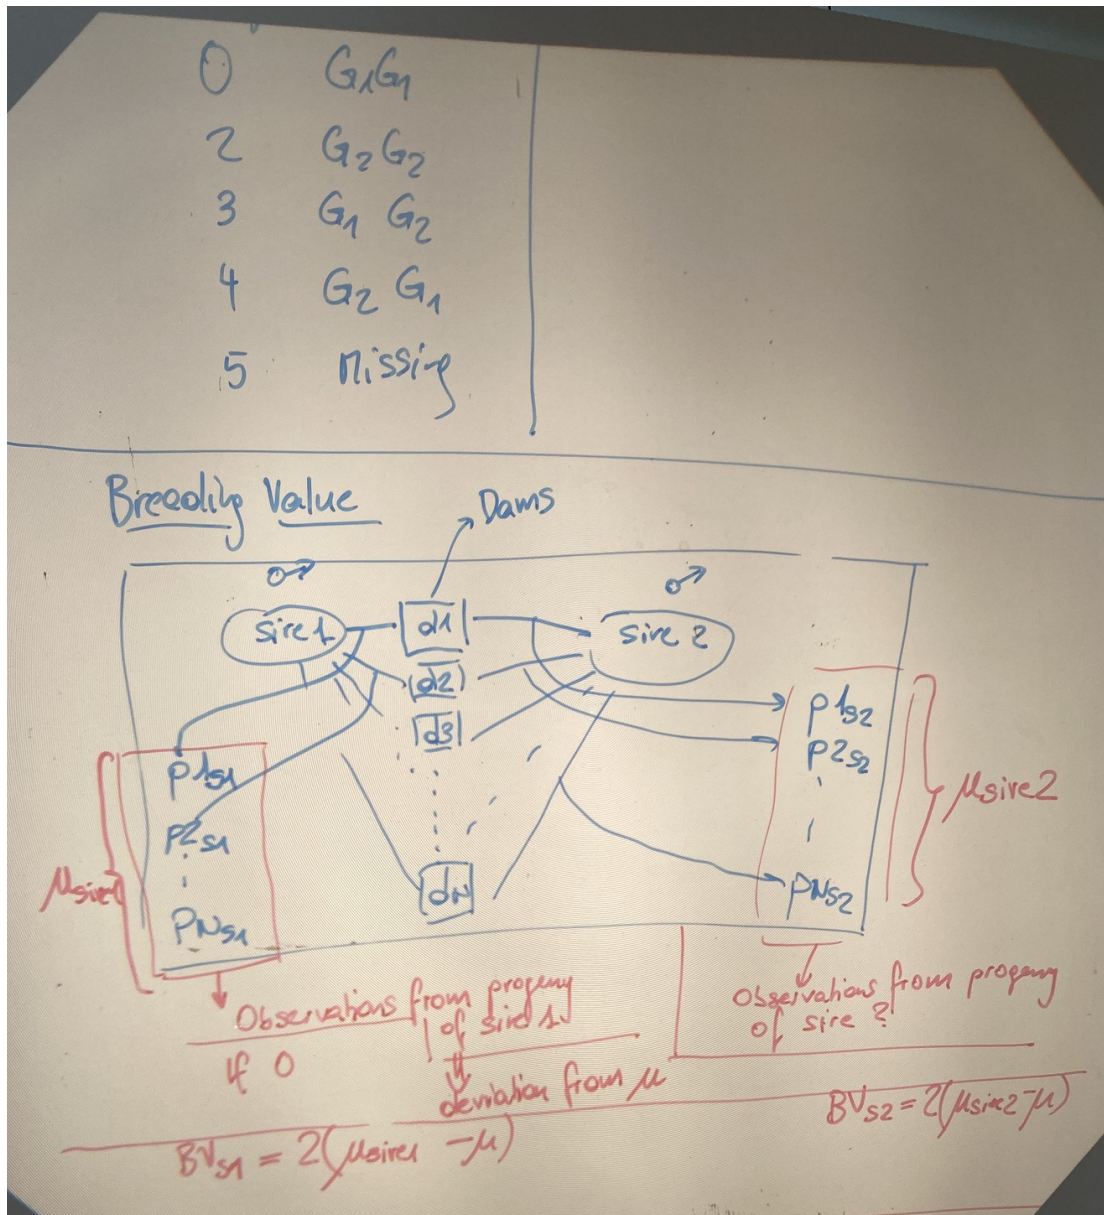 0 G1G1
2 G2G2
3 G1 G2
4 G2 G1
5 Missing
Breeding Value
Dams
♂ ♂
sire 1 d1 sire 2
d2
d3
dN
p1s1
p2s1
PNs1
μsire1
p1s2
p2s2
PNs2
μsire2
Observations from progeny
of sire 1
If 0
deviation from μ
BVs1 = 2(μsire1 - μ)
Observations from progeny
of sire 2
BVs2 = 2(μsire2 - μ)